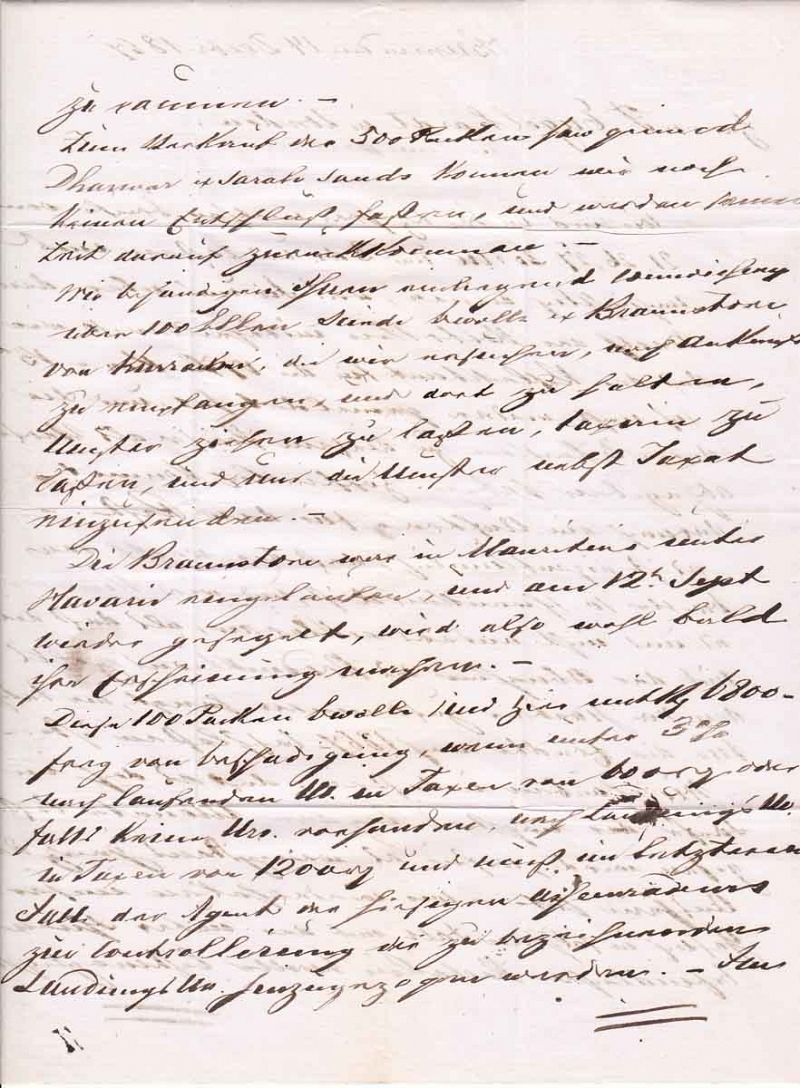 zu räumen. –
Zum Verkauf der 500 Ballen saw ginned
Dharwar ex Sarah Sands können wir noch
keinen Entschluß faßen, und werden
Zeit darauf zurückkommen. –
Wir behändigen Ihnen einliegend
über 100 Ballen Scinde bwolle ex Braunstone
von Kurrachee, die wir ersuchen, nach Ankunft
zu empfangen, und dort zu halten,
Muster ziehen zu laßen, taxiren zu
laßen, und uns die Muster nebst Taxat
einzusenden. –
Die Braunstone war in Mauritius unter
Havarie eingelaufen, und am 12t Sept
wieder gesegelt, wird also wohl bald
ihre Erscheinung machen. –
Diese 100 Ballen bwolle sind hier mit 6800 –
frey von beschädigung, wenn unter 3%
nach laufenden No. in Taxen von oder
falls keine Nos. vorhanden, nach Landungs No.
in Taxen von 1200 und muß im letzteren
Fall der Agent der hiesigen Assecuradeurs
zur Controllirung der zu bezeichnenden
Landungs No. hinzugezogen werden. –